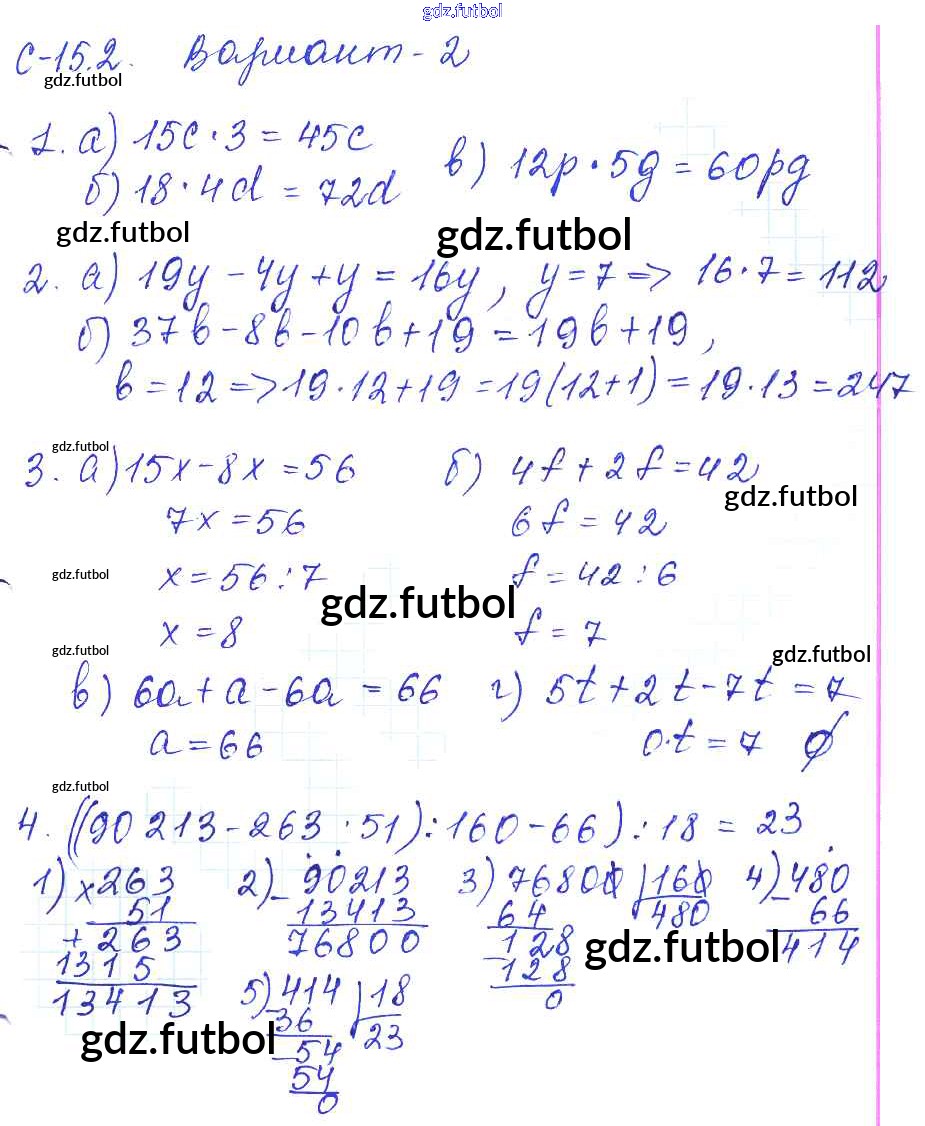 gdz.futbol
С-15.2. Вариант-2
gdz.futbol
1. а) 15c·3 = 45c
б) 18·4d = 72d
в) 12p·5g = 60pg
gdz.futbol gdz.futbol
2. а) 19y - 4y + y = 16y, y = 7 => 16·7 = 112
б) 37b - 8b - 10b + 19 = 19b + 19,
b = 12 => 19·12 + 19 = 19(12+1) = 19·13 = 247
gdz.futbol
3. а) 15x - 8x = 56 б) 4f + 2f = 42
gdz.futbol
7x = 56 6f = 42
gdz.futbol x = 56 : 7 f = 42 : 6
gdz.futbol
x = 8 f = 7
gdz.futbol gdz.futbol
в) 6a + a - 6a = 66 г) 5t + 2t - 7t = 7
a = 66 0·t = 7 ∅
gdz.futbol
4. ((90 213 - 263 · 51) : 160 - 66) : 18 = 23
1) × 263 2) - 90213 3) 76800 | 160 4) - 480
51 13413 64 480 66
+ 263 76800 - 128 414
1315 128
13413 0
gdz.futbol
5) 414 | 18
- 36 23
gdz.futbol
- 54
54
0